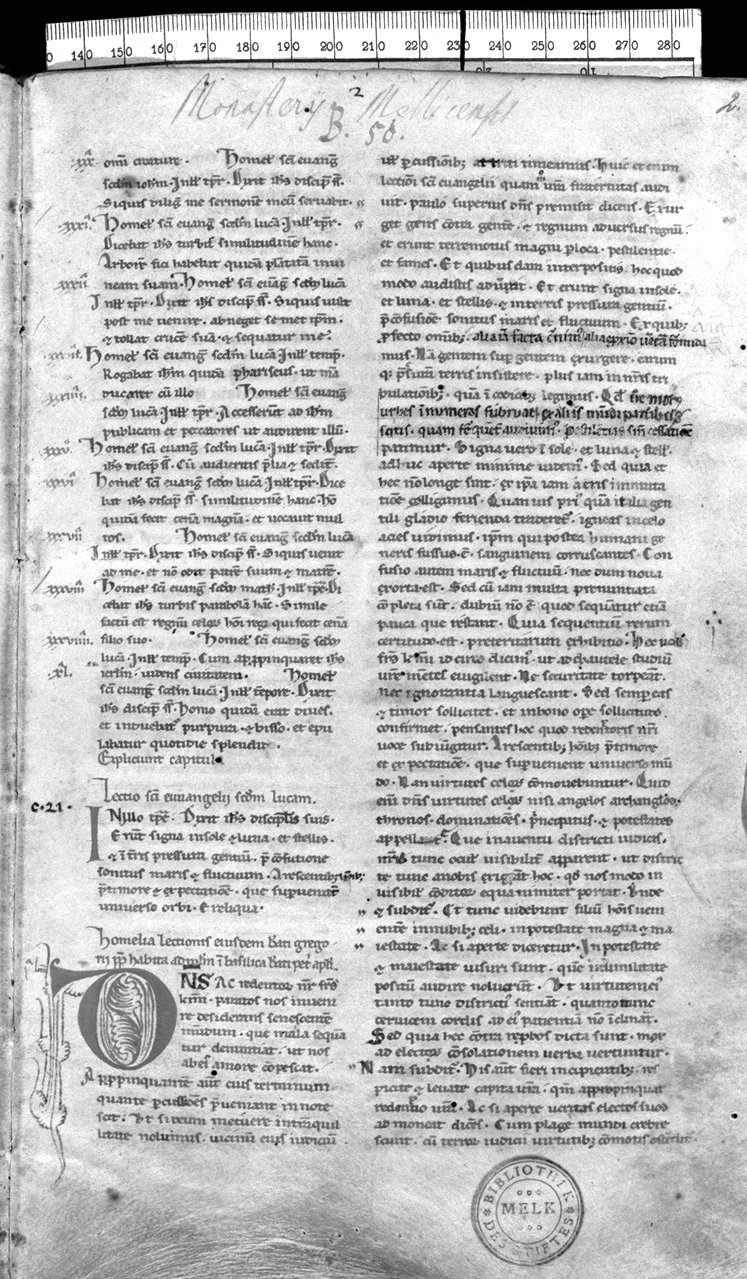 140 150 160 170 180 190 200 210 220 230 240 250 260 270 280
2
Monastery Mellicensis
B. 56.
2.
xxx. omni creature. Homel sci euang
scdm iohm. Inill tpr. Dixit ihs discip ss.
Siquis diligit me sermone meu servabit.
xxxi. Homel sci euang scdm luca Inill tpr.
Dicebat ihs turbis similitudine hanc.
Arbore fici habebat quida plantata in ui
xxxii neam suam. Homel sci euang scdm luca
Inill tpr. Dixit ihs discip ss. Siquis uult
post me uenire. abneget semet ipm.
& tollat cruce sua. & sequatur me.
Homel sci euang scdm luca Inill temp.
Rogabat ihm quida phariseus. ut ma
ducaret cu illo Homel sci euang
scdm luca. Inill tpr. Accesserunt ad ihm
publicani et peccatores ut audirent illu.
xxxv. Homel sci euang scdm luca. Inill tpr. Dixit
ihs discip ss. Cu audieritis plia & sedit.
xxxvi Homel sci euang scdm luca. Inill tpr. Dice
bat ihs discip ss. similitudine hanc. Ho
quida fecit cena magna. et uocauit mul
xxxvii tos. Homel sci euang scdm luca
Inill tpr. Dixit ihs discip ss. Siquis uenit
ad me. et no odit patre suum & matre.
xxxviii Homel sci euang scdm math. Inill tpr. Di
cebat ihs turbis parabola hanc. Simile
factu est regnu celoru homi regi qui fecit cena
xxxviiii. filio suo. Homel sci euang scdm
luca. Inill temp. Cum appropinquaret ihs
xl. ierlm. uidens ciuitatem. Homel
sci euang scdm luca. Inill tepore. Dixit
ihs discip ss. Homo quida erat diues.
et induebat purpura. & bisso. et epu
labatur quotidie splendide.
Expliciunt capitula
Lectio sci euuangelii scdm lucam.
c. 21. INillo tpre. Dixit ihs discipulis suis.
Erunt signa in sole & luna. et stellis.
& i tris pressura gentiu. p confusione
sonitus maris & fluctuum. Arescentib; homib;
p timore & expectatione. que supuenient
uniuerso orbi. Et reliqua.
Homelia lectionis eiusdem Bati grego
rii pp habita ad pplm i basilica Bati petri apli.
DNS AC redemtor nr frs
kmi. paratos nos inueni
re desiderans senescente
mundum. que mala sequa
tur denuntiat. ut nos
ab ei amore copescat.
Appropinquante aut eius terminum
quante pcussiones pueniant innote
scit. Ut si deum metuere intranquil
litate nolumus. uicinu eius iudiciu
uel pcussionib; attriti timeamus. Huic et enim
lectioni sci euangelii quam m ura fraternitas audi
uit. paulo superius dns premisit dicens. Exur
get gens contra gente. & regnum aduersus regnu.
et erunt terremotus magni p loca. pestilentie.
et fames. Et quibusdam interpositis hoc quod
modo audistis adiunxit. Et erunt signa in sole.
et luna. et stellis. & in terris pressura gentiu.
p confusione sonitus maris et fluctuum. Ex quib;
pfecto omib;. alia iam facta cernim; alia e pximo uentura formida
mus. Na gentem sup gentem exurgere. earum
q; pressura terris insistere. plus iam in nris tri
bulationib;. qua i codicib; legimus. Qd terre mot;
urbes innumeras subruat. ex aliis mundi partib; scitis
quam frequent audiuim;. Pestilentias sine cessatione
patimur. Signa uero i sole. et luna & stell.
adhuc aperte minime uidem;. Sed quia et
hec no longe sint. ex ipsa iam aeris inmuta
tione colligimus. Quamuis pri qua italia gen
tili gladio ferienda traderet. igneas in celo
acies uidimus. ipsm qui postea humani ge
neris fusus e. sanguinem corruscantes. Con
fusio autem maris & fluctuu. nec dum noua
exorta est. Sed cu iam multa prenuntiata
copleta sint. dubiu no e quod sequantur etia
pauca que restant. Quia sequentiu rerum
certitudo est. preteritarum exhibitio. Hec nos
frs kmi idcirco dicim;. ut ad cautele studiu
ure mentes euigilent. Ne securitate torpeant.
nec ignorantia languescant. Sed semp eas
& timor sollicitet. et in bono ope sollicitudo
confirmet. pensantes hoc quod redemtoris nri
uoce subiungitur. Arescentib; homib; p timore
et expectatione. que supuenient uniuerso mu
do. Nam uirtutes celoru comouebuntur. Quid
eni dns uirtutes celoru nisi angelos archangelos;
thronos. dominationes. principatus. & potestates
appellat. Que in aduentu districti iudicis.
nris tunc oculis uisibilit apparent. ut distric
te tunc a nobis exigant hoc. qd nos modo in
uisibilis conditor equanimiter portat. Unde
& subditur. Et tunc uidebunt filiu hois ueni
ente in nubib; celi. in potestate magna & ma
iestate. Ac si aperte diceretur. In potestate
& maiestate uisuri sunt. que in humilitate
positu audire noluerunt. Ut uirtutem ei
tanto tunc districti sentiant. quanto nunc
ceruicem cordis ad ei patientia no iclinant.
Sed quia hec contra reprobos dicta sunt. mox
ad electoru consolationem uerba uertuntur.
Nam subdit. His aut fieri incipientib; res
picite & leuate capita ura. qm appropinquat
redemptio ura. Ac si aperte ueritas electos suos
admoneat dices. Cum plage mundi crebre
scunt. cu terror iudicii uirtutib; comotis ostendit.
BIBLIOTHEK
MELK
DES STIFTES